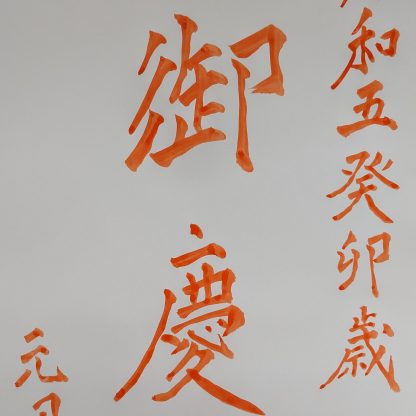 和五癸卯歳
御慶
元